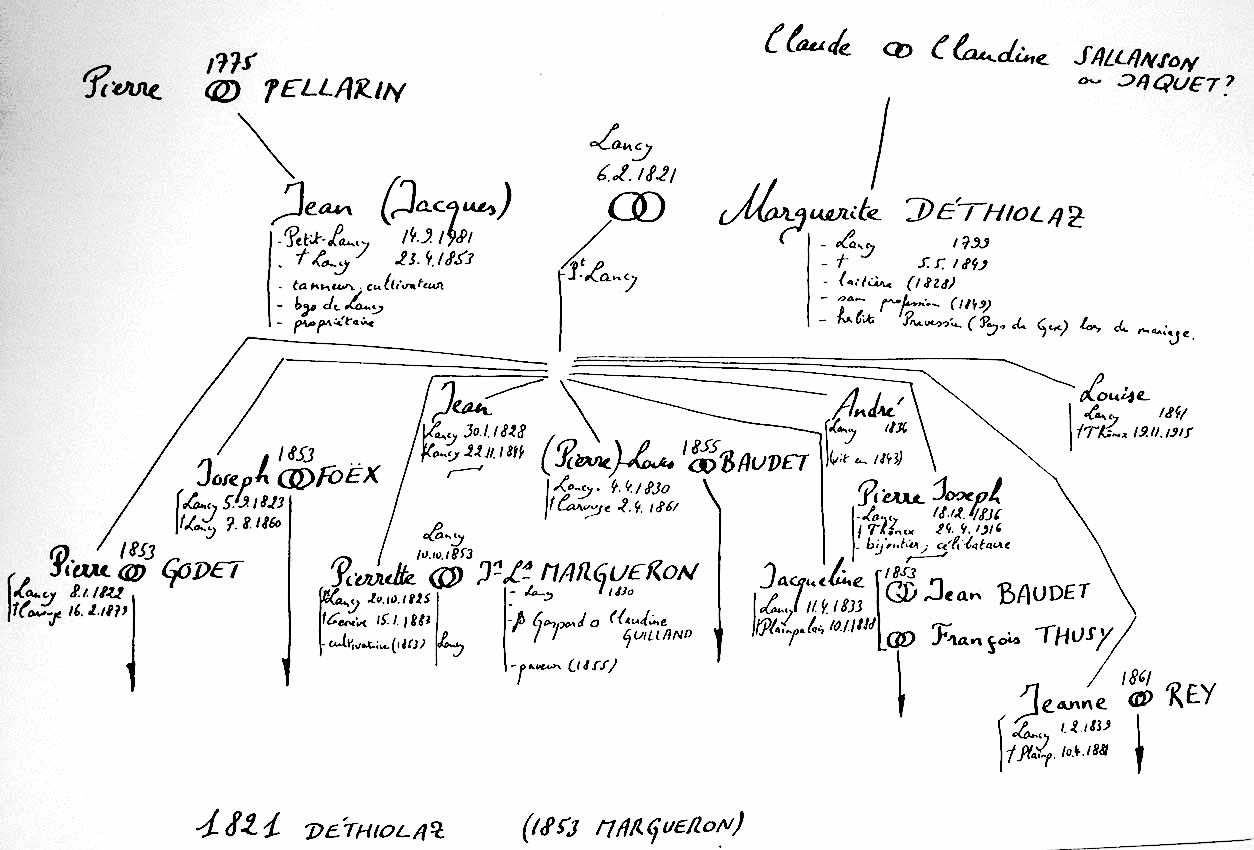 Claude ⚭ Claudine SALLANSON
ou JAQUET?
1775
Pierre ⚭ PELLARIN
Lancy
6.2.1821
⚭
Jean (Jacques)
- Petit-Lancy 14.9.1981
- † Lancy 23.4.1853
- tanneur, cultivateur
- bgs de Lancy
- propriétaire
Marguerite DÉTHIOLAZ
- Lancy 1799
- † 5.5.1849
- laitière (1828)
- sans profession (1849)
- habite Prevessin (Pays de Gex) lors du mariage.
Pt Lancy
Jean
Lancy 30.1.1828
Lancy 22.11.1844
André
Lancy 1836
(vit en 1843)
Louise
Lancy 1841
† Thônex 19.11.1915
1853
Joseph ⚭ FOËX
Lancy 5.9.1823
† Lancy 7.8.1860
1855
(Pierre)-Louis ⚭ BAUDET
Lancy. 4.4.1830
† Carouge 2.4.1861
Pierre Joseph
- Lancy 18.12.1836
† Thônex 24.4.1916
- bijoutier, célibataire
1853
Pierre ⚭ GODET
Lancy 8.1.1822
† Carouge 16.2.1879
Lancy
10.10.1853
Pierrette ⚭ Jn Ls MARGUERON
Lancy 20.10.1825
† Genève 15.1.1883
- cultivatrice (1853) Lancy
- Lancy 1830
- p Gaspard o Claudine
GUILLAND
- paveur (1855)
Jacqueline
Lancy 11.4.1833
† Plainpalais 10.1.1888
1853
⚭ Jean BAUDET
⚭ François THUSY
1861
Jeanne ⚭ REY
Lancy 1.2.1839
† Plainp. 10.4.1881
1821 DÉTHIOLAZ (1853 MARGUERON)